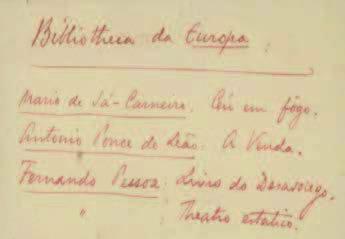 Bibliotheca da Europa:
Mario de Sá-Carneiro: Céu em fôgo.
Antonio Ponce de Leão: A Venda.
Fernando Pessoa: Livro do Desasocego.
" : Theatro estatico.